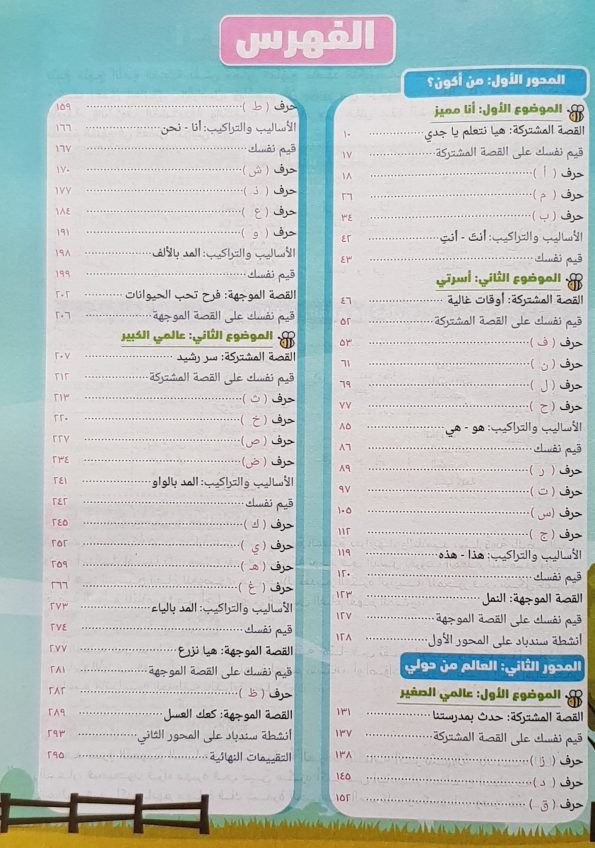 الفهرس
المحور الأول: من أكون؟
الموضوع الأول: أنا مميز
القصة المشتركة: هيا نتعلم يا جدي ١٠
قيم نفسك على القصة المشتركة ١٧
حرف ( أ ) ١٨
حرف ( م ) ٢٦
حرف ( ب ) ٣٤
الأساليب والتراكيب: أنتَ - أنتِ ٤٢
قيم نفسك ٤٣
الموضوع الثاني: أسرتي
القصة المشتركة: أوقات غالية ٤٦
قيم نفسك على القصة المشتركة ٥٢
حرف ( ف ) ٥٣
حرف ( ن ) ٦١
حرف ( ل ) ٦٩
حرف ( ح ) ٧٧
الأساليب والتراكيب: هو - هي ٨٥
قيم نفسك ٨٦
حرف ( ر ) ٨٩
حرف ( ت ) ٩٧
حرف (س ) ١٠٥
حرف ( ج ) ١١٢
الأساليب والتراكيب: هذا - هذه ١١٩
قيم نفسك ١٢٠
القصة الموجهة: النمل ١٢٣
قيم نفسك على القصة الموجهة ١٢٧
أنشطة سندباد على المحور الأول ١٢٨
المحور الثاني: العالم من حولي
الموضوع الأول: عالمي الصغير
القصة المشتركة: حدث بمدرستنا ١٣١
قيم نفسك على القصة المشتركة ١٣٧
حرف ( ز ) ١٣٨
حرف ( د ) ١٤٥
حرف ( ق ) ١٥٢
حرف ( ط ) ١٥٩
الأساليب والتراكيب: أنا - نحن ١٦٦
قيم نفسك ١٦٧
حرف ( ش ) ١٧٠
حرف ( ذ ) ١٧٧
حرف ( ع ) ١٨٤
حرف ( و ) ١٩١
الأساليب والتراكيب: المد بالألف ١٩٨
قيم نفسك ١٩٩
القصة الموجهة: فرح تحب الحيوانات ٢٠٢
قيم نفسك على القصة الموجهة ٢٠٦
الموضوع الثاني: عالمي الكبير
القصة المشتركة: سر رشيد ٢٠٧
قيم نفسك على القصة المشتركة ٢١٢
حرف ( ث ) ٢١٣
حرف ( خ ) ٢٢٠
حرف ( ص) ٢٢٧
حرف ( ض) ٢٣٤
الأساليب والتراكيب: المد بالواو ٢٤١
قيم نفسك ٢٤٢
حرف ( ك ) ٢٤٥
حرف ( ي ) ٢٥٢
حرف ( هـ ) ٢٥٩
حرف ( غ ) ٢٦٦
الأساليب والتراكيب: المد بالياء ٢٧٣
قيم نفسك ٢٧٤
القصة الموجهة: هيا نزرع ٢٧٧
قيم نفسك على القصة الموجهة ٢٨١
حرف ( ظ ) ٢٨٢
القصة الموجهة: كعك العسل ٢٨٩
أنشطة سندباد على المحور الثاني ٢٩٣
التقييمات النهائية ٢٩٥